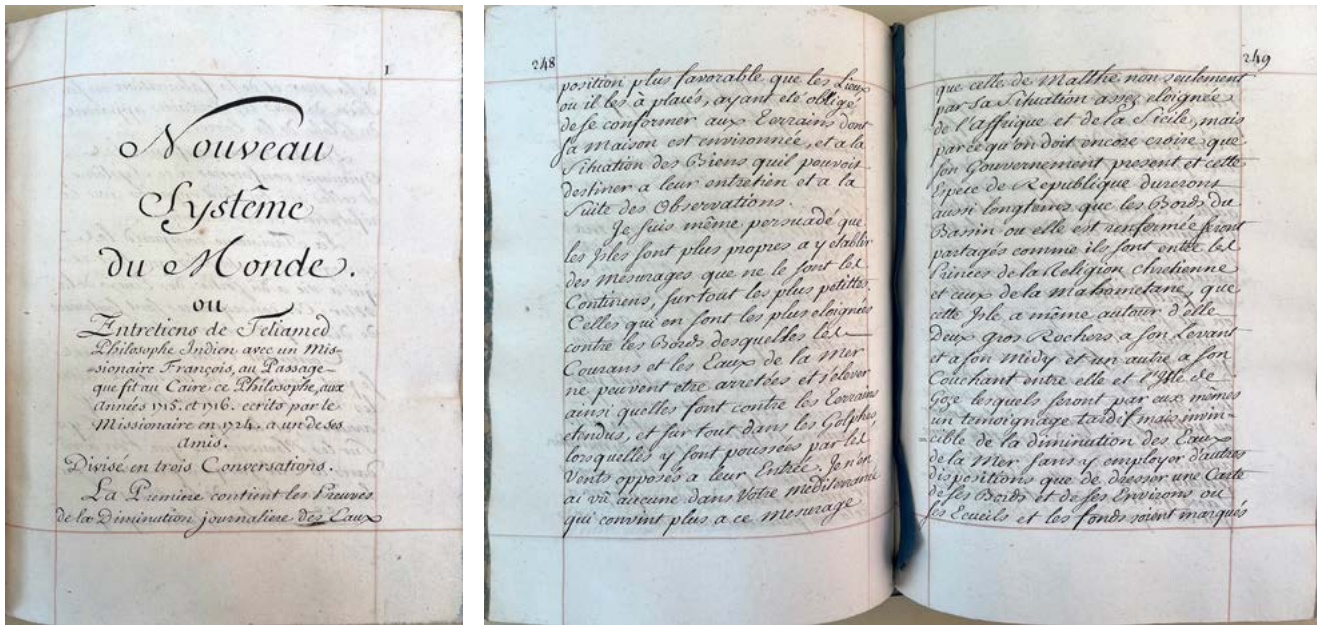 1
Nouveau
Systême
du Monde.
ou
Entretiens de Teliamed
Philosophe Indien avec un Mis-
sionaire François, au Passage
que fit au Caire ce Philosophe, aux
Années 1715. et 1716. ecrits par le
Missionaire en 1724. a un de ses
Amis.
Divisé en trois Conversations.
La Premiere contient les Preuves
de la Diminution journaliere des Eaux
248
position plus favorable que les Lieux
ou il les à placés, ayant eté obligé
de se conformer aux Terrains dont
sa maison est environnée, et a la
Situation des Biens quil pouvoit
destiner a leur entretien et a la
Suite des Observations.
Je suis même persuadé que
les Isles sont plus propres a y etablir
des mesurages que ne le sont les
Continens, surtout les plus petittes.
Celles qui en sont les plus eloignées
contre les Bords desquelles les
Courans et les Eaux de la Mer
ne peuvent etre arretées et s'elever
ainsi quelles font contre les Terrains
etendus, et sur tout dans les Golphes,
lorsquelles y sont poussées par les
Vents opposés a leur Entrée. Je n'en
ai vû aucune dans Votre mediterranée
qui convint plus a ce mesurage
249
que celle de Malthe non seulement
par sa Situation assez eloignée
de l'Affrique et de la Sicile, mais
parce qu'on doit encore croire que
son Gouvernement present et cette
Espèce de Republique dureront
aussi longtems que les Bords du
Bassin ou elle est renfermée seront
partagés comme ils sont entre les
Princes de la Religion chretienne
et ceux de la mahometane, que
cette Isle a même autour d'elle
Deux gros Rochers a son Levant
et a son Midy et un autre a son
Couchant entre elle et l'Isle de
Goze lesquels seront par eux mêmes
un temoignage tardif mais invin-
=cible de la diminution des Eaux
de la Mer sans y employer d'autres
dispositions que de dresser une Carte
de ses Bords et de ses Environs ou
ses Ecueils et les fonds soient marqués